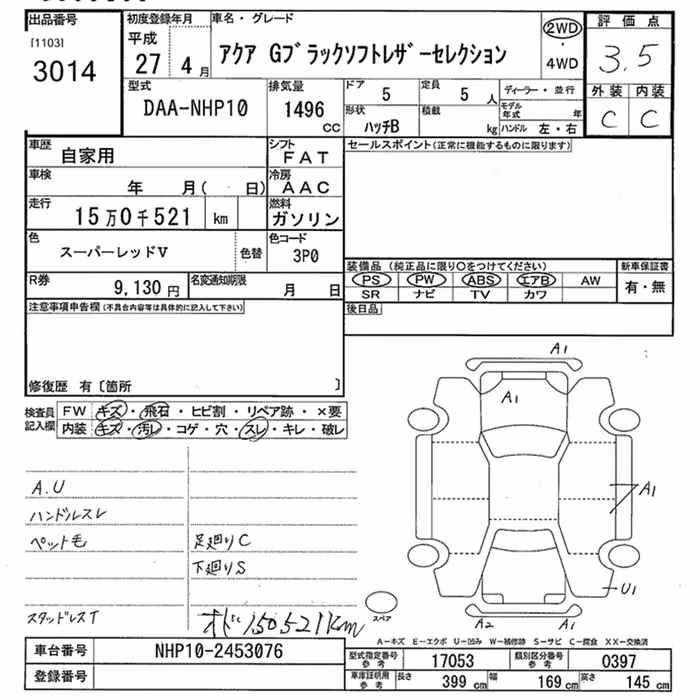 出品番号
[1103]
3014
初度登録年月
平成
27 4月
車名・グレード
アクア Gブラックソフトレザーセレクション
2WD
・
4WD
評価点
3.5
外装 内装
C C
型式
DAA-NHP10
排気量
1496
CC
ドア
5
定員
5 人
形状
ハッチB
積載
kg
ディーラー・並行
モデル年式 年
ハンドル 左・右
車歴
自家用
シフト
FAT
車検
年 月( 日)
冷房
AAC
走行
15万0千521 km
燃料
ガソリン
色
スーパーレッドV
色替
色コード
3P0
R券
9,130 円
名変通知期限
月 日
セールスポイント(正常に機能するものに限ります)
装備品(純正品に限り○をつけてください)
PS PW ABS エアB AW
SR ナビ TV カワ
新車保証書
有・無
後日品
注意事項申告欄(不具合内容等は具体的に記入して下さい)
修復歴 有〔箇所 〕
検査員記入欄
FW キズ・飛石・ヒビ割・リペア跡・×要
内装 キズ・汚レ・コゲ・穴・スレ・キレ・破レ
A.U
ハンドルスレ
ペット毛
足廻りC
下廻りS
スタッドレスT
オド150521km
A1
A1
A1
U1
A2 A1
スペア
A－キズ E－エクボ U－凹み W－補修跡 S－サビ C－腐食 XX－交換済
車台番号
NHP10-2453076
登録番号
型式指定番号 参考
17053
類別区分番号 参考
0397
車庫証明用 参考
長さ 399 cm
幅 169 cm
高さ 145 cm